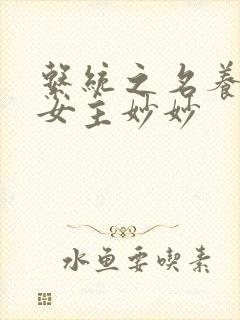 繫統之名養
女主妙妙
水鱼要喫素